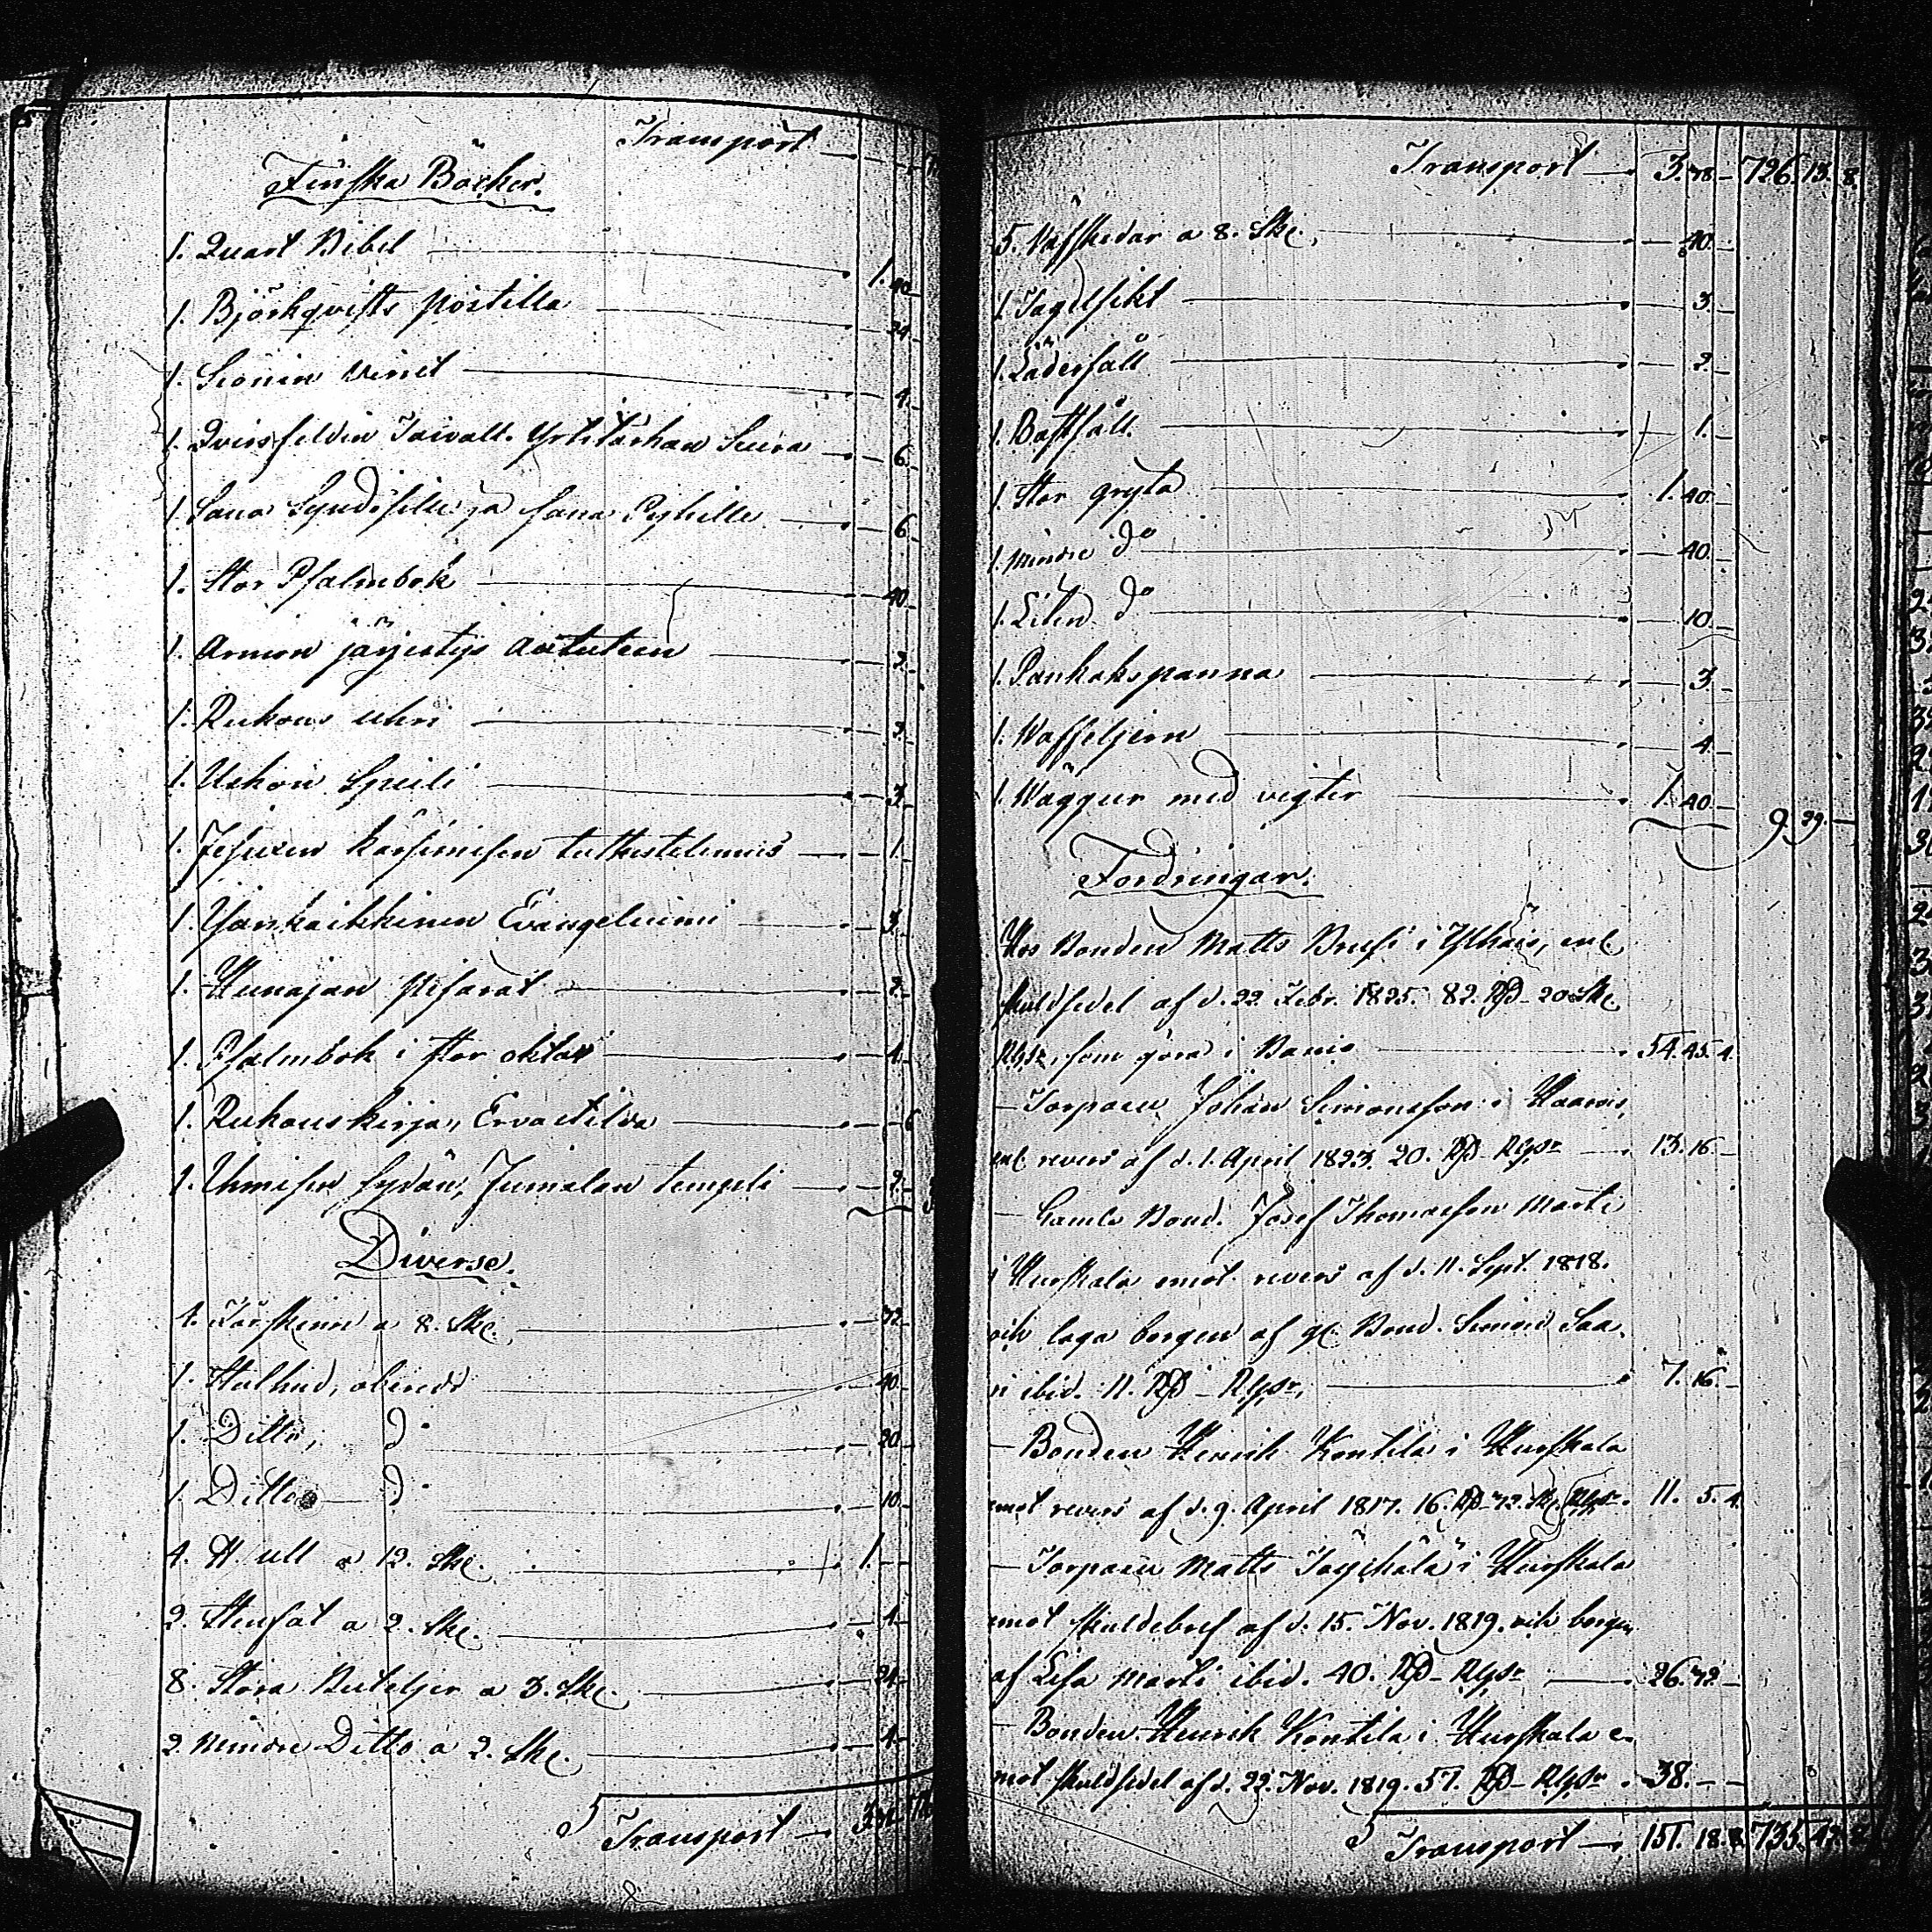 Transport —
Finska Böcker.
1. Quart Bibel — 1. 40. —
1. Björkqvists Postilla — 24. —
1. Sionin Wirret — 4. —
1. Qvirsfeldin Taivall. Yrtitarhan Seura — 6. —
1. Sana Syndisille ja sana Pyhille — 6. —
1. Stor Psalmbok — 40. —
1. Armon järjestys Autuuteen — 2. —
1. Rukous uhri — 2. —
1. Uskon Speili — 3. —
1. Jesuxen kärsimisen tutkistelemus — 1. —
1. Yxinkaikkinen Evangeliumi — 3. —
1. Hunajan Pisarat — 2. —
1. Psalmbok i stor oktav — 4. —
1. Rukouskirja, Ervastilda — 6
1. Ihmisen sydän, Jumalan tempeli — 2. —
Diverse.
4. Fårskinn a 8. Sk. — 32. —
1. Kalhud, oberedd — 40. —
1. Ditto, do — 20. —
1. Ditto — do — 10. —
4. ℔ ull a 12. Sk. — 1. —
2. Stenfat a 2. Sk. — 4. —
8. Stora Buteljer a 3. Sk. — 24. —
2. Mindre Ditto a 2. Sk. — 4. —
Transport —
Transport — 3. 78. — 726. 13. 8.
5. Väfskedar a 8. Sk. — 40. —
1. Tagelsikt — 3. —
1. Lädersåll — 2. —
1. Bastsåll — 1. —
1. Stor gryta — 1. 40. —
1. Mindre do — 40. —
1. Liten do — 10. —
1. Pankakspanna — 3. —
1. Waffeljern — 4. —
1. Wågqur med vigter — 1. 40. — 9. 29. —
Fordringar.
Hos Bonden Matts Brusi i Ylhäis, enl.
skuldsedel af d. 22 Febr. 1825. 82. Rd — 20 Sk.
Rgsr, som göra i Banco — 54. 45. 4.
— Torparen Johan Simonsson i
enl. revers af d. 1. April 1823. 20. Rd Rgsr — 13. 16. —
— Gamle Bond. Josef Thomasson Martti
i Hurskala emot revers af d. 11. Sept. 1818.
och laga borgen af gl. Bond. Simon Saa-
ri ibid. 11. Rd — Rgsr, — 7. 16. —
— Bonden Henrik Konttila i Hurskala
emot revers af d. 9. April 1817. 16. Rd — 32. Sk. Rgsr. 11. 5. 4.
— Torparen Matts i Hurskala
emot skuldebref af d. 15. Nov. 1819. och borgen
af Lisa Martti ibid. 40. Rd — Rgsr — 26. 32. —
— Bonden Henrik Konttila i Hurskala e-
mot skuldsedel af d. 22. Nov. 1819. 57. Rd — Rgsr — 38. — —
Transport — 151. 18. 8.